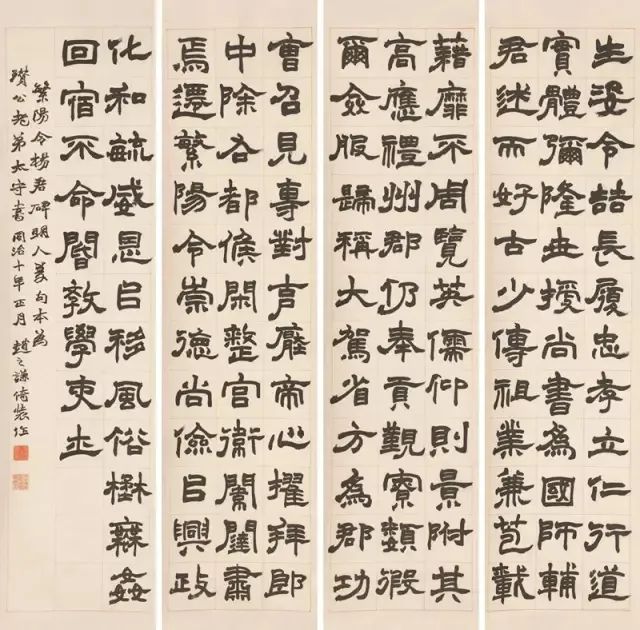 生姿令喆長履忠孝立仁行道
實體彌隆世授尚書為國師輔
君述而好古少傳祖業兼苞載
藉靡不周覽英儒仰則景附其
高應禮州郡仍奉貢覲寮類假
爾僉服歸稱大駕省方為郡功
曹召見專對言廰帝心擢拜郎
中除右都候閑整官衛闈闥肅
焉遷繁陽令崇德尚儉㠯興政
化和毓威恩㠯移風俗楙姦
回宿不命閽教學吏士
繁陽令楊君碑明人雙句本為
瓚公老弟太守書同治十年正月趙之謙倚裝作